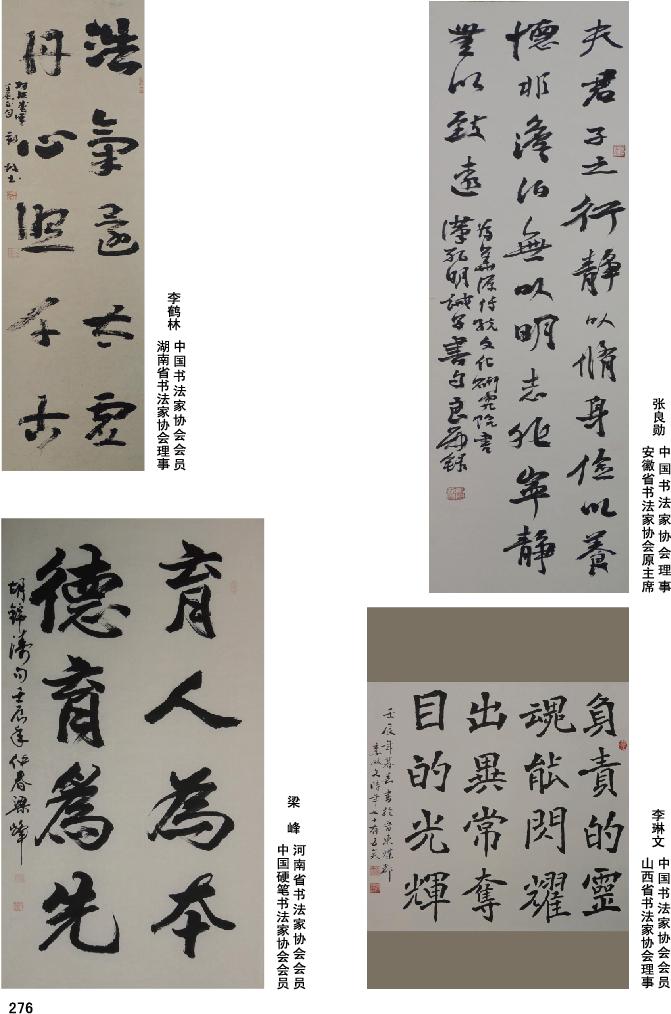 浩氣還太虛
丹心照千古
李鹤林
中国书法家协会会员
湖南省书法家协会理事
夫君子之行靜以脩身儉以養
德非澹泊無以明志非寧靜
無以致遠
张良勋
中国书法家协会理事
安徽省书法家协会原主席
育人為本
德育為先
胡錦濤句壬辰年仲春梁峰
梁峰
河南省书法家协会会员
中国硬笔书法家协会会员
負責的靈
魂能閃耀
出異常奪
目的光輝
李琳文
中国书法家协会会员
山西省书法家协会理事
276